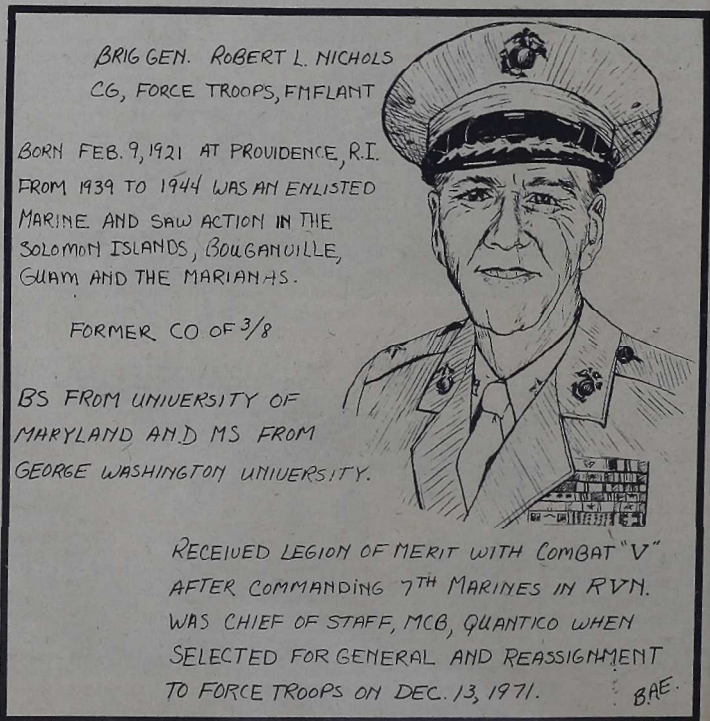 BRIG GEN. ROBERT L. NICHOLS
CG, FORCE TROOPS, FMFLANT
BORN FEB. 9, 1921 AT PROVIDENCE, R.I.
FROM 1939 TO 1944 WAS AN ENLISTED
MARINE AND SAW ACTION IN THE
SOLOMON ISLANDS, BOUGANVILLE,
GUAM AND THE MARIANAS.
FORMER CO OF 3/8
BS FROM UNIVERSITY OF
MARYLAND AND MS FROM
GEORGE WASHINGTON UNIVERSITY.
RECEIVED LEGION OF MERIT WITH COMBAT "V"
AFTER COMMANDING 7TH MARINES IN RVN.
WAS CHIEF OF STAFF, MCB, QUANTICO WHEN
SELECTED FOR GENERAL AND REASSIGNMENT
TO FORCE TROOPS ON DEC. 13, 1971.
BAE.